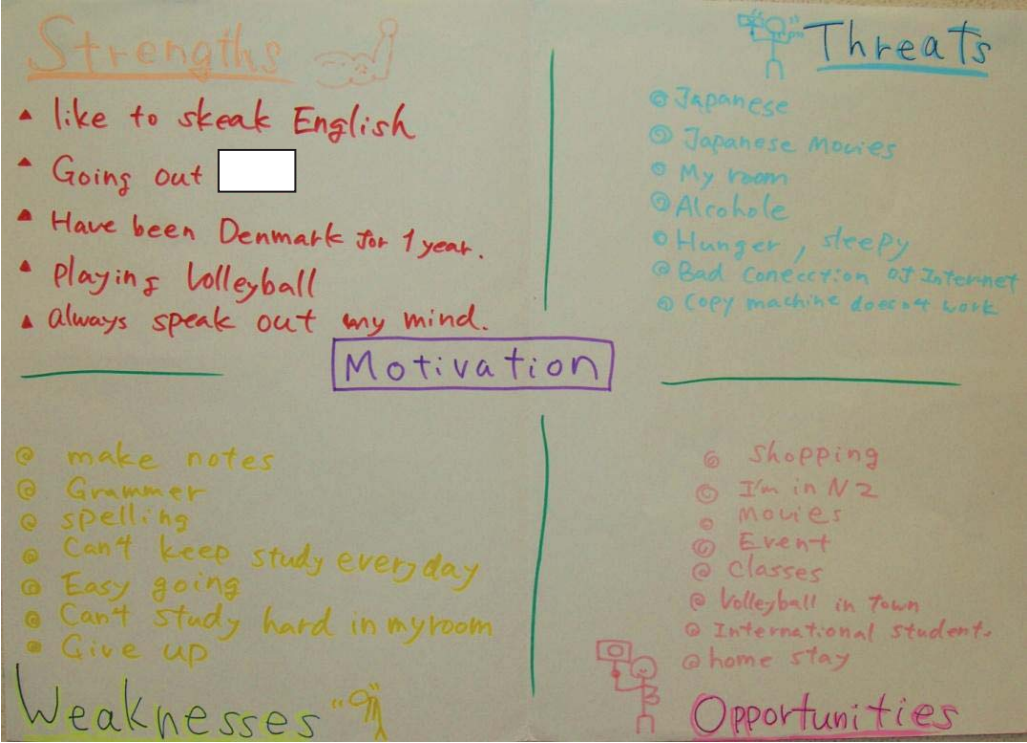 Strengths
like to skeak English
Going out
Have been Denmark for 1 year.
Playing Volleyball
always speak out my mind.
Threats
Japanese
Japanese Movies
My room
Alcohole
Hunger, sleepy
Bad conecction of Internet
Copy machine doesn't work
Motivation
make notes
Grammer
spelling
Can't keep study everyday
Easy going
Can't study hard in my room
Give up
Weaknesses
Shopping
I'm in NZ
Movies
Event
Classes
Volleyball in Town
International students
home stay
Opportunities